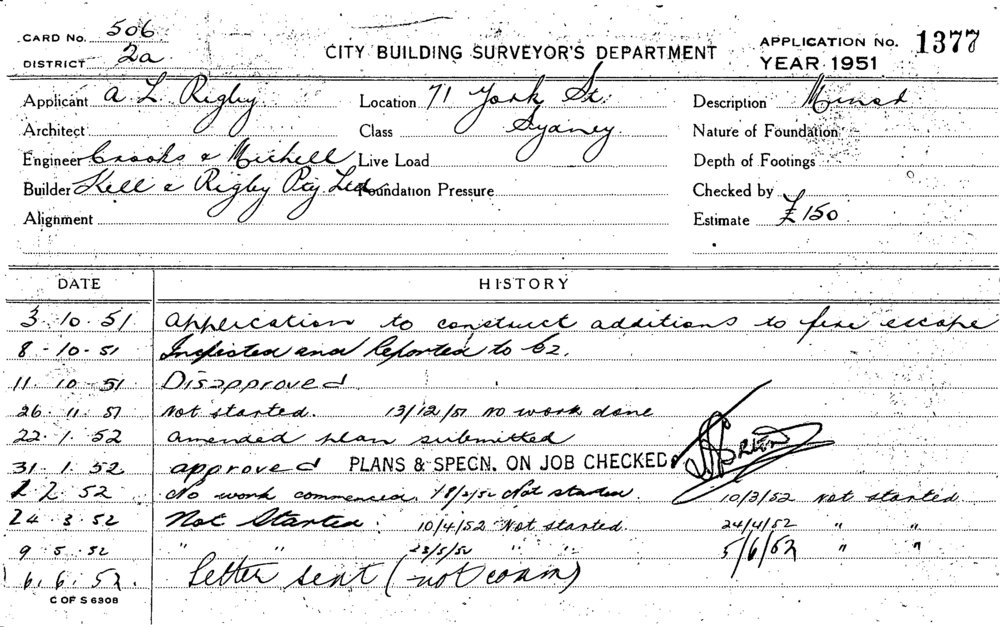 CARD No. 506
DISTRICT 2a
CITY BUILDING SURVEYOR'S DEPARTMENT
APPLICATION No. 1377
YEAR 1951
Applicant A L Rigby Location 71 York St. Description Minor
Architect Class Sydney Nature of Foundation
Engineer Crooks & Michell Live Load Depth of Footings
Builder Kell & Rigby Pty Ltd Foundation Pressure Checked by
Alignment Estimate £150
DATE HISTORY
3 . 10 . 51 Application to construct additions to fire escape
8 - 10 - 51 Inspected and Reported to
11 . 10 - 51 Disapproved
26 . 11 . 51 Not started. 13/12/51 No work done
22 . 1 . 52 Amended plan submitted
31 . 1 . 52 approved PLANS & SPECN. ON JOB CHECKED
2 . 52 No work commenced. Not started. 10/3/52 Not started
24 . 3 . 52 Not Started. 10/4/52 Not started. 24/4/52 " "
9 . 5 . 52 " " 23/5/52 " " 5/6/52 " "
6 . 6 . 52. Letter sent (not comm)
C OF S 6308